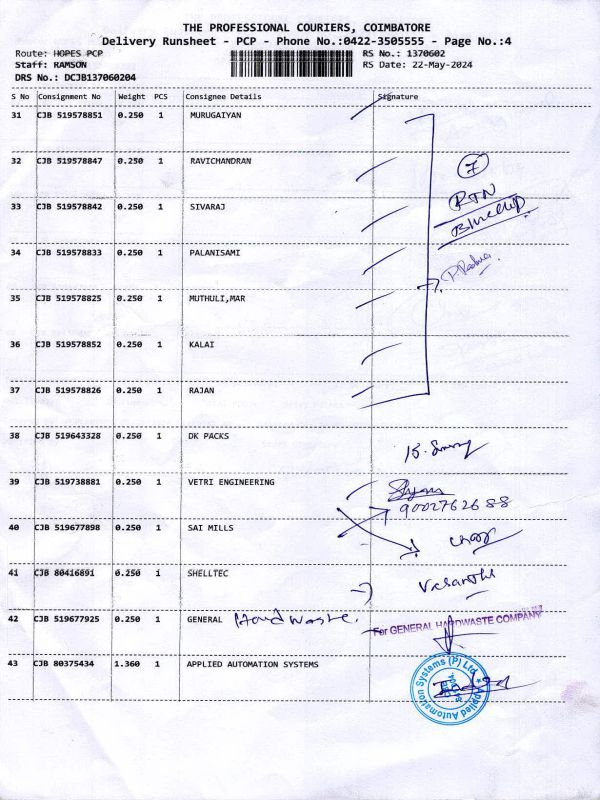 THE PROFESSIONAL COURIERS, COIMBATORE
Delivery Runsheet - PCP - Phone No.:0422-3505555 - Page No.:4
Route: HOPES PCP RS No.: 1370602
Staff: RAMSON RS Date: 22-May-2024
DRS No.: DCJB137060204
S No Consignment No Weight PCS Consignee Details Signature
31 CJB 519578851 0.250 1 MURUGAIYAN
32 CJB 519578847 0.250 1 RAVICHANDRAN
7
RTN
33 CJB 519578842 0.250 1 SIVARAJ
34 CJB 519578833 0.250 1 PALANISAMI
35 CJB 519578825 0.250 1 MUTHULI,MAR
36 CJB 519578852 0.250 1 KALAI
37 CJB 519578826 0.250 1 RAJAN
38 CJB 519643328 0.250 1 DK PACKS
39 CJB 519738881 0.250 1 VETRI ENGINEERING
9002762688
40 CJB 519677898 0.250 1 SAI MILLS
41 CJB 80416891 0.250 1 SHELLTEC Vasantha
42 CJB 519677925 0.250 1 GENERAL Hard Waste.
For GENERAL HARDWASTE COMPANY
43 CJB 80375434 1.360 1 APPLIED AUTOMATION SYSTEMS
Applied Automation Systems (P) Ltd